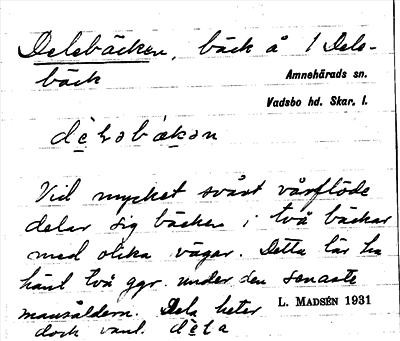 Delsbäcken, bäck å 1 Dels-
bäck
Amnehärads sn.
Vadsbo hd. Skar. l.
Vid mycket svårt vårflöde
delar sig bäcken i två bäckar
med olika vägar. Detta lär ha
hänt två ggr. under den senaste
mansåldern. Dela heter
L. MADSÉN 1931
dock vanl. dela